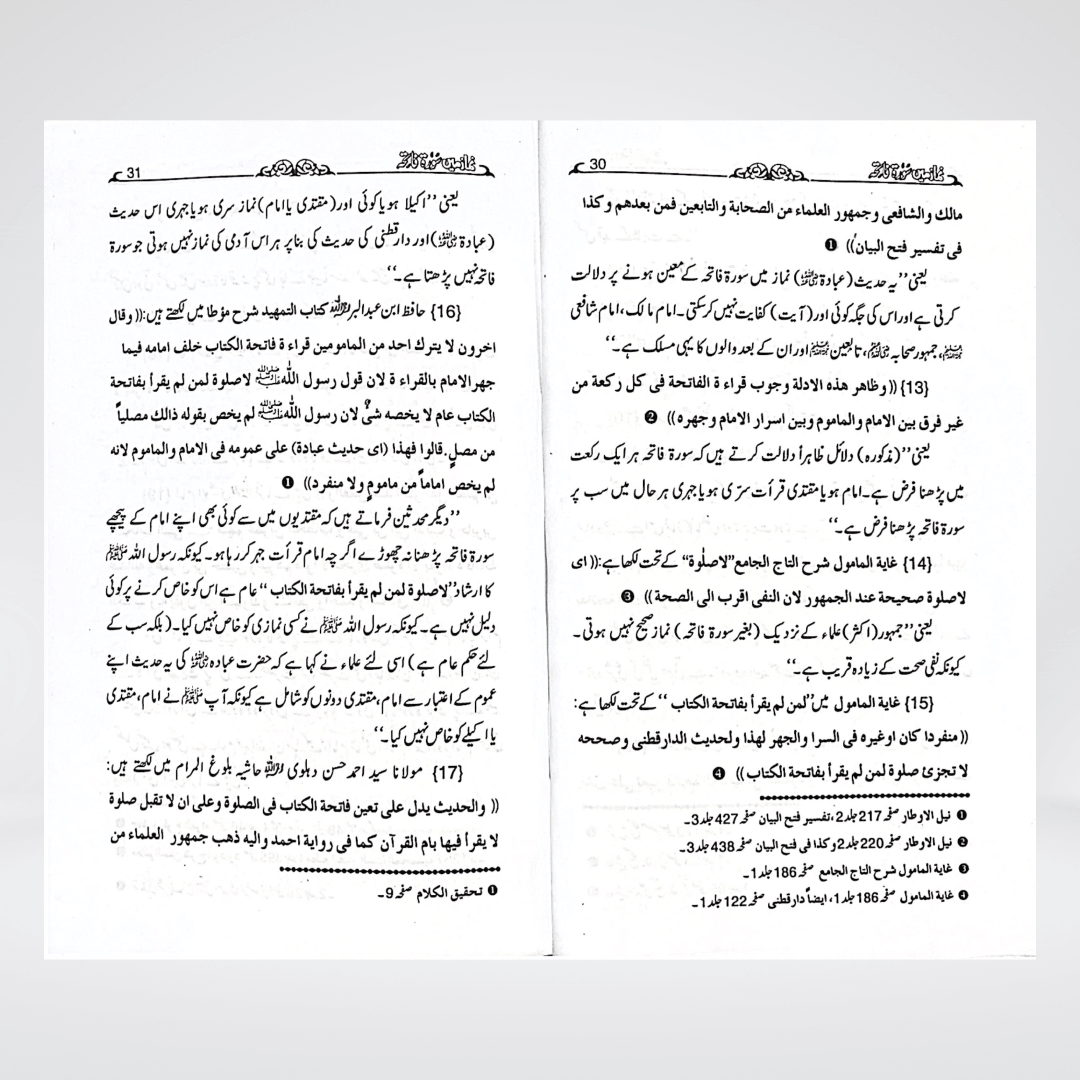 نماز میں سورۃ فاتحہ
30
مالك والشافعی وجمهور العلماء من الصحابة والتابعین فمن بعدهم وكذا
فی تفسیر فتح البیان)) ❶
یعنی ’’یہ حدیث (عبادۃ ﷜) نماز میں سورۃ فاتحہ کے معین ہونے پر دلالت
کرتی ہے اور اس کی جگہ کوئی اور (آیت) کفایت نہیں کر سکتی۔ امام مالک، امام شافعی
جمہور صحابہ، تابعین اور ان کے بعد والوں کا یہی مسلک ہے۔‘‘
{13} ((وظاهر هذه الادلة وجوب قراء ة الفاتحة فی كل ركعة من
غیر فرق بین الامام والماموم وبین اسرار الامام وجهره)) ❷
یعنی ’’(مذکورہ) دلائل ظاہراً دلالت کرتے ہیں کہ سورۃ فاتحہ ہر ایک رکعت
میں پڑھنا فرض ہے۔ امام ہو یا مقتدی قرأت سرّی ہو یا جہری ہر حال میں سب پر
سورۃ فاتحہ پڑھنا فرض ہے۔‘‘
{14} غایة المامول شرح التاج الجامع ’’لاصلٰوة‘‘ کے تحت لکھا ہے: ((ای
لاصلوة صحیحة عند الجمهور لان النفی اقرب الی الصحة)) ❸
یعنی ’’جمہور (اکثر) علماء کے نزدیک (بغیر سورۃ فاتحہ) نماز صحیح نہیں ہوتی۔
کیونکہ نفی صحت کے زیادہ قریب ہے۔‘‘
{15} غایة المامول میں ’’لمن لم یقرأ بفاتحة الكتاب‘‘ کے تحت لکھا ہے:
((منفردا كان اوغیره فی السرا والجهر لهذا ولحدیث الدارقطنی وصححه
لا تجزئ صلوة لمن لم یقرأ بفاتحة الكتاب)) ❹
❶ نیل الاوطار صفحہ 217 جلد 2، تفسیر فتح البیان صفحہ 427 جلد 3۔
❷ نیل الاوطار صفحہ 220 جلد 2 وکذا فی فتح البیان صفحہ 438 جلد 3۔
❸ غایة المامول شرح التاج الجامع صفحہ 186 جلد 1۔
❹ غایة المامول صفحہ 186 جلد 1، ایضاً دارقطنی صفحہ 122 جلد 1۔
نماز میں سورۃ فاتحہ
31
یعنی ’’اکیلا ہو یا کوئی اور (مقتدی یا امام) نماز سری ہو یا جہری اس حدیث
(عبادۃ ﷜) اور دارقطنی کی حدیث کی بنا پر ہر اس آدمی کی نماز نہیں ہوتی جو سورۃ
فاتحہ نہیں پڑھتا ہے۔‘‘
{16} حافظ ابن عبدالبر ﷫ کتاب التمہید شرح مؤطا میں لکھتے ہیں: ((وقال
اخرون لا یترك احد من المامومین قراء ة فاتحة الكتاب خلف امامه فیما
جهر الامام بالقراء ة لان قول رسول الله ﷺ لاصلوة لمن لم یقرأ بفاتحة
الكتاب عام لا یخصه شئٌ لان رسول الله ﷺ لم یخص بقوله ذالك مصلیاً
من مصلٍ. قالوا فهذا (ای حدیث عبادة) علی عمومه فی الامام والماموم لانه
لم یخص اماماً من مامومٍ ولا منفرد)) ❶
’’دیگر محدثین فرماتے ہیں کہ مقتدیوں میں سے کوئی بھی اپنے امام کے پیچھے
سورۃ فاتحہ پڑھنا نہ چھوڑے اگرچہ امام قرأت جہر کر رہا ہو۔ کیونکہ رسول اللہ ﷺ
کا ارشاد ’’لاصلوة لمن لم یقرأ بفاتحة الكتاب‘‘ عام ہے اس کو خاص کرنے پر کوئی
دلیل نہیں ہے۔ کیونکہ رسول اللہ ﷺ نے کسی نمازی کو خاص نہیں کیا۔ (بلکہ سب کے
لئے حکم عام ہے) اسی لئے علماء نے کہا ہے کہ حضرت عبادہ ﷜ کی یہ حدیث اپنے
عموم کے اعتبار سے امام، مقتدی دونوں کو شامل ہے کیونکہ آپ ﷺ نے امام، مقتدی
یا اکیلے کو خاص نہیں کیا۔‘‘
{17} مولانا سید احمد حسن دہلوی ﷫ حاشیہ بلوغ المرام میں لکھتے ہیں:
((والحدیث یدل علی تعین فاتحة الكتاب فی الصلوة وعلی ان لا تقبل صلوة
لا یقرأ فیها بام القرآن كما فی روایة احمد والیه ذهب جمهور العلماء من
❶ تحقیق الکلام صفحہ 9۔